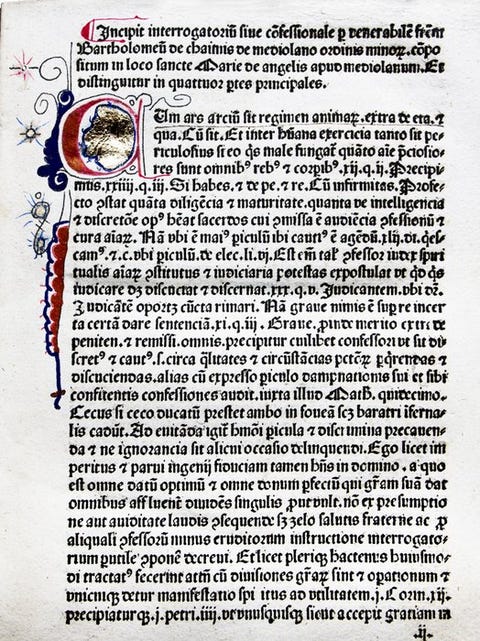 Incipit interrogatoriū siue cōfessionale ꝑ venerabilē frēm
Bartholomeū de chaimis de mediolano ordinis minoꝝ. cōpo
situm in loco sancte Marie de angelis apud mediolanum. Et
distinguitur in quattuor ꝑtes principales.
CUm ars arciū sit regimen animaꝝ. extra de eta. ⁊
qua. Cū sit. Et inter hūana exercicia tanto sit pe-
riculosius si eo qͥs male fungat᷑ quāto aīe p̄ciosio-
res sunt omnibꝰ rebꝰ ⁊ corꝑibꝰ .xij. q. ij. Precipi-
mus. xxiii. q. iii. Si habes. ⁊ de pe. ⁊ re. Cū infirmitas. Profe-
cto ꝯstat quāta diligēcia ⁊ maturitate. quanta ve intelligencia
⁊ discretōe opꝰ hēat sacerdos cui ꝯmissa ē audiēcia ꝯfessionū ⁊
cura aīaꝝ. Nā vbi ē maiꝰ ꝑiculū ibi cautiꝰ ē agēdū. xlij. di. qͥes-
cam⁹. ⁊. c. vbi ꝑiculū. de elec. li. vj. Est em̄ tal᷑ ꝯfessor iudex spiri
tualis aīaꝝ ꝯstitutus ⁊ iudiciaria potestas expostulat vt qd̓ qͥs
iudicare dꝫ discutat ⁊ discernat. xxx. q. v. Judicantem. vbi dr̄.
Judicātē oportꝫ cūcta rimari. Nā graue nimis ē suꝑ re incer
ta certā dare sentenciā. xi. q. iii. Graue. ꝓinde merito extra de
peniten. ⁊ remissi. omnis. precipitur cuilibet confessori vt sit di-
scretꝰ ⁊ cautꝰ. s. circa qͣlitates ⁊ circūstācias pctōꝝ ꝑqͥrendas ⁊
discuciendas. alias cū expresso ꝑiculo dampnationis sui et sibi
confitentis confessiones audit. iuxta illud Math. quidecimo.
Cecus si ceco ducatū prestet ambo in foueā scꝫ baratri iferna-
lis cadūt. Ad euitāda igit᷑ hmōi ꝑicula ⁊ discrimina precauen-
da ⁊ ne ignorancia sit alicui occasio delinquendi. Ego licet im
peritus ⁊ parui ingenij fiduciam tamen hn̄s in domino. a quo
est omne datū optimū ⁊ omne donum ꝑfectū qui gr̄am suā dat
omnibus affluent᷑ diuidēs singulis ꝓut vult. nō ex presumptio
ne aut auiditate laudis ꝯsequende sꝫ zelo salutis fraterne ac ꝓ
aliquali ꝯfessorū minus eruditorum instructione interrogato-
rium ꝑutile ꝯponē decreui. Et licet pleriqꝫ hactenus huiusmo-
di tractatꝰ fecerint attn̄ cū diuisiones gr̄aꝝ sint ⁊ oꝑationum ⁊
vnicuiqꝫ detur manifestatio spiritus ad vtilitatem. j. Corin. xij.
precipiaturqꝫ. j. petri. iiij. vt vnusquisqꝫ sicut accepit gratiam in
.ij.